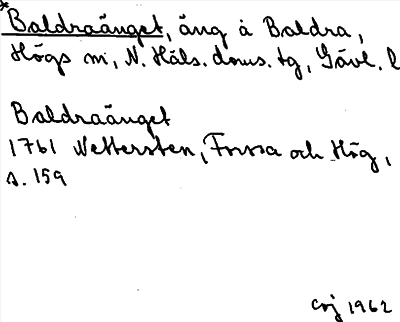 *Baldraänget, äng å Baldra,
Högs sn, N. Häls. doms. tg, Gävl. l
Baldraänget
1761 Wettersten, Forssa och Hög,
s. 159
1962